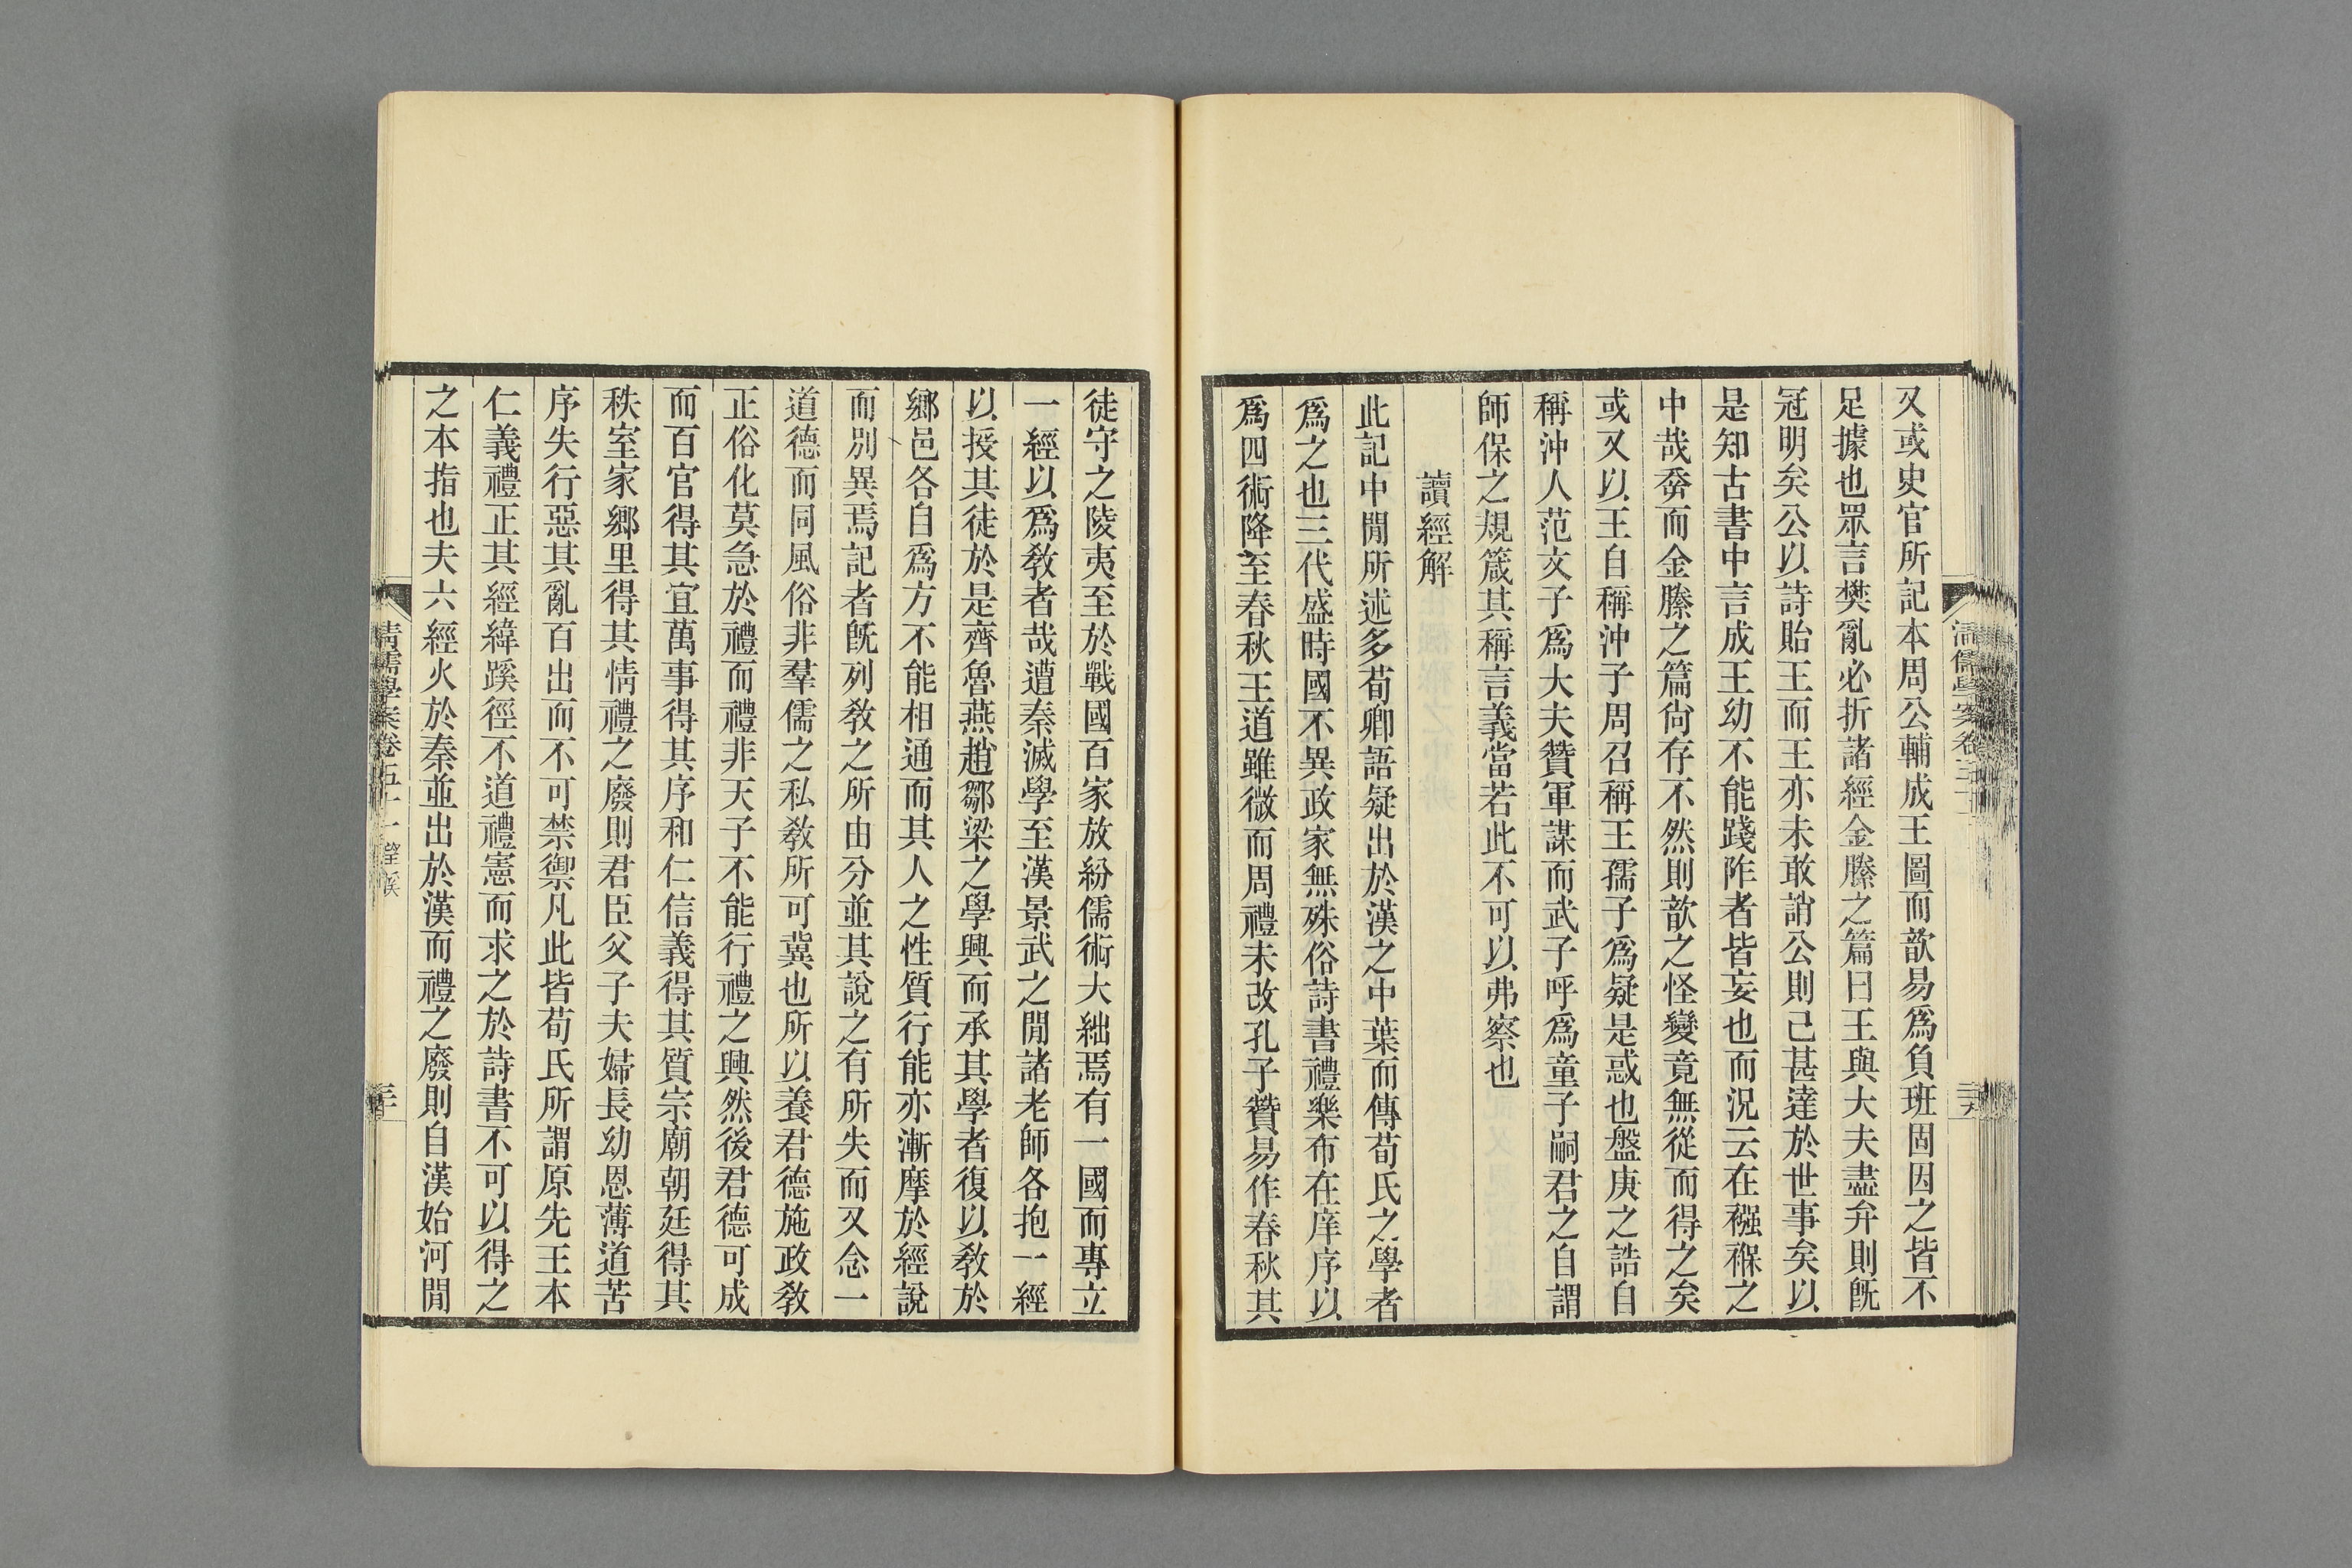 又或史官所記本周公輔成王圖而歆易爲負班固因之皆不
足據也眾言樊亂必折諸經金縢之篇曰王與大夫盡弁則旣
冠明矣公以詩貽王而王亦未敢誚公則已甚達於世事矣以
是知古書中言成王幼不能踐阼者皆妄也而況云在襁褓之
中哉㚏而金縢之篇尙存不然則歆之怪變竟無從而得之矣
或又以王自稱沖子周召稱王孺子爲疑是惑也盤庚之誥自
稱沖人范文子爲大夫贊軍謀而武子呼爲童子嗣君之自謂
師保之規箴其稱言義當若此不可以弗察也
讀經解
此記中閒所述多荀卿語疑出於漢之中葉而傳荀氏之學者
爲之也三代盛時國不異政家無殊俗詩書禮樂布在庠序以
爲四術降至春秋王道雖微而周禮未改孔子贊易作春秋其
徒守之陵夷至於戰國百家放紛儒術大絀焉有一國而專立
一經以爲敎者哉遭秦滅學至漢景武之閒諸老師各抱一經
以授其徒於是齊魯燕趙鄒梁之學興而承其學者復以敎於
鄉邑各自爲方不能相通而其人之性質行能亦漸摩於經說
而別異焉記者旣列敎之所由分並其說之有所失而又念一
道德而同風俗非羣儒之私敎所可冀也所以養君德施政敎
正俗化莫急於禮而禮非天子不能行禮之興然後君德可成
而百官得其宜萬事得其序和仁信義得其質宗廟朝廷得其
秩室家鄉里得其情禮之廢則君臣父子夫婦長幼恩薄道苦
序失行惡其亂百出而不可禁禦凡此皆荀氏所謂原先王本
仁義禮正其經緯蹊徑不道禮憲而求之於詩書不可以得之
之本指也夫六經火於秦並出於漢而禮之廢則自漢始河閒
清儒學案卷五十一